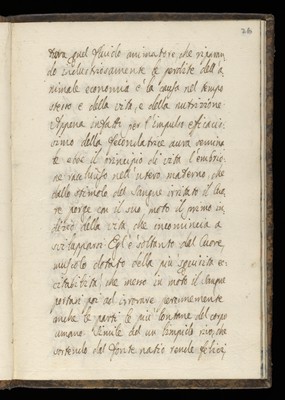 quel fluido animatore che riparan
do industriosamente le perdite dell'a
nimale economia è la causa nel tempo
stesso e della vita, e della nutrizione.
Appena infatti per l'impulso efficacis
simo della fecondatrice aura
il principio di vita l'embrio
ne racchiuso nell'utero materno, che
dallo stimolo del sangue irritato il cuo
re porge con il suo moto il primo in
dizio della vita che incomincia a
svilupparsi. Egl'è soltanto dal cuore,
muscolo dotato della più squisita ec
citabilità, che messo in moto il sangue
portasi poi ad irrorare perennemente
anche le parti le più lontane del corpo
umano. Simile ad un limpido rio, che
sortendo dal fonte natio rende felici,